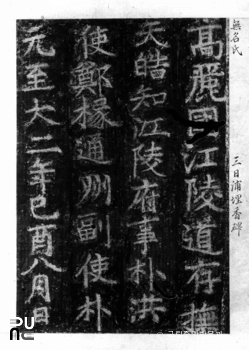 無名氏
三日浦埋香碑
高麗國江陵道存撫
使鄭椽通州副使朴
天皓知江陵府事朴洪
元至大二年己酉八月日